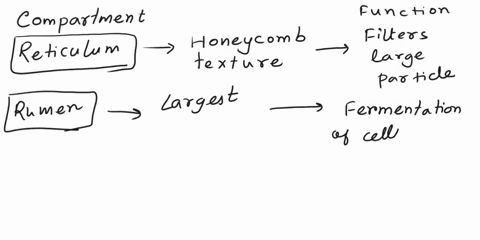 Compartment Function
Reticulum → Honeycomb texture → Filters large particle
Rumen → Largest → Fermentation of cell